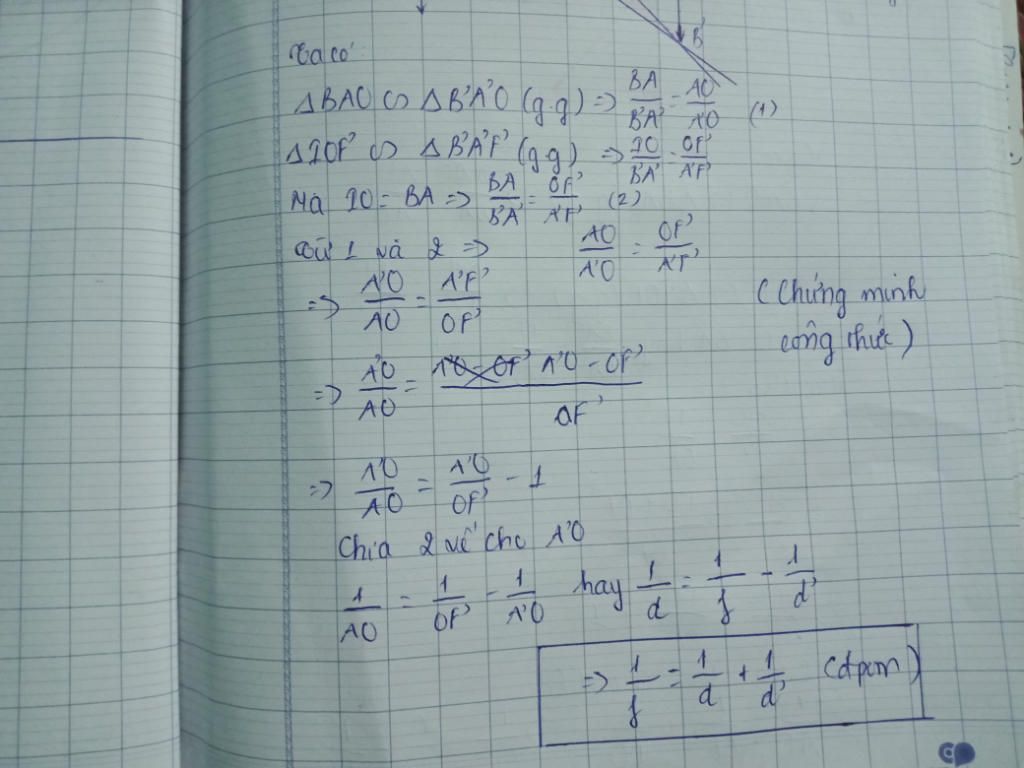 B'
Ta có:
ΔBAO ∽ ΔB'A'O (g.g) => BA/B'A' = AO/A'O (1)
ΔIOF' ∽ ΔB'A'F' (g.g) => IO/B'A' = OF'/A'F'
Mà IO = BA => BA/B'A' = OF'/A'F' (2)
Từ 1 và 2 => AO/A'O = OF'/A'F'
=> A'O/AO = A'F'/OF'
(Chứng minh
công thức)
=> A'O/AO = (A'O - OF')/OF'
=> A'O/AO = A'O/OF' - 1
Chia 2 vế cho A'O
1/AO = 1/OF' - 1/A'O hay 1/d = 1/f - 1/d'
=> 1/f = 1/d + 1/d' (đpcm)